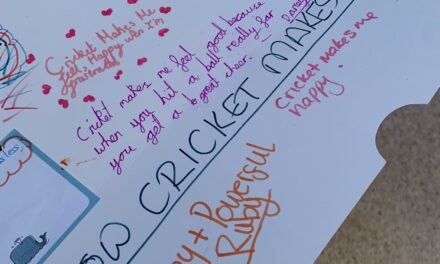 Cricket Makes Me
feel Happy wen I'm
Cricket makes me feel good because
when you hit a ball really far
you get a great cheer.
OW CRICKET MAKES
Cricket makes me
happy.
y + Powerful
Ruby
less!